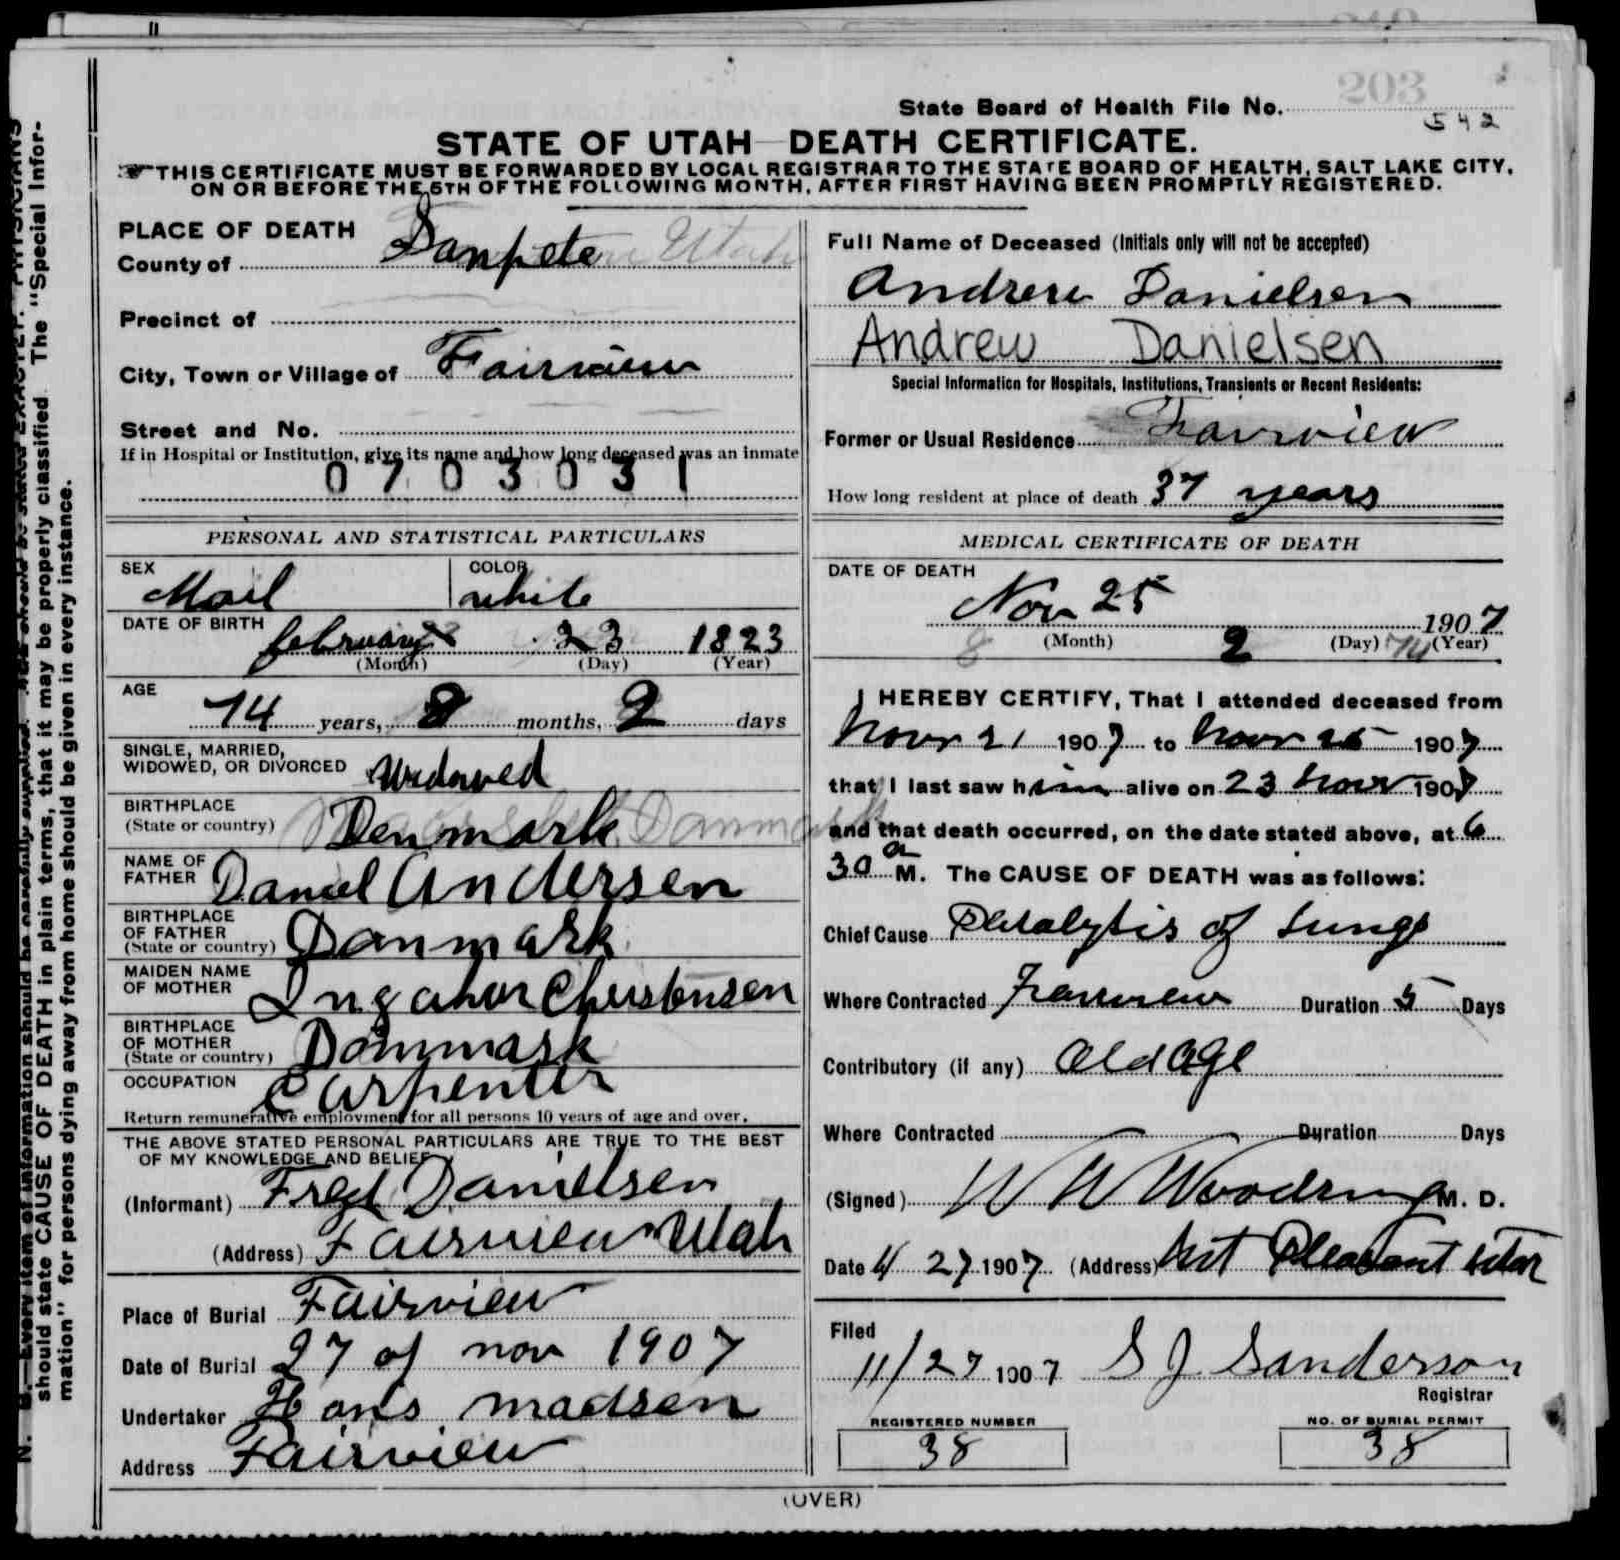 203
State Board of Health File No.
542
STATE OF UTAH DEATH CERTIFICATE.
THIS CERTIFICATE MUST BE FORWARDED BY LOCAL REGISTRAR TO THE STATE BOARD OF HEALTH, SALT LAKE CITY,
ON OR BEFORE THE 5TH OF THE FOLLOWING MONTH, AFTER FIRST HAVING BEEN PROMPTLY REGISTERED.
PLACE OF DEATH
County of Sanpete Utah
Precinct of
City, Town or Village of Fairview
Street and No.
If in Hospital or Institution, give its name and how long deceased was an inmate
0703031
PERSONAL AND STATISTICAL PARTICULARS
SEX Mail COLOR white
DATE OF BIRTH february 23 1823
(Month) (Day) (Year)
AGE 74 years, 8 months, 2 days
SINGLE, MARRIED,
WIDOWED, OR DIVORCED Widowed
BIRTHPLACE
(State or country) Denmark Danmark
NAME OF
FATHER Daniel Andersen
BIRTHPLACE
OF FATHER
(State or country) Danmark
MAIDEN NAME
OF MOTHER Ingabor Christensen
BIRTHPLACE
OF MOTHER
(State or country) Danmark
OCCUPATION Carpenter
Return remunerative employment for all persons 10 years of age and over.
THE ABOVE STATED PERSONAL PARTICULARS ARE TRUE TO THE BEST
OF MY KNOWLEDGE AND BELIEF
(Informant) Fred Danielsen
(Address) Fairview Utah
Place of Burial Fairview
Date of Burial 27 of nov 1907
Undertaker Hans madsen
Address Fairview
Full Name of Deceased (Initials only will not be accepted)
Andrew Danielsen
Andrew Danielsen
Special Information for Hospitals, Institutions, Transients or Recent Residents:
Former or Usual Residence Fairview
How long resident at place of death 37 years
MEDICAL CERTIFICATE OF DEATH
DATE OF DEATH
Nov 25 1907
(Month) (Day) (Year)
8 2 74
I HEREBY CERTIFY, That I attended deceased from
Nov 21 1907 to Nov 25 1907
that I last saw him alive on 23 Nov 1907
and that death occurred, on the date stated above, at 6
30 a M. The CAUSE OF DEATH was as follows:
Chief Cause Paralytis of Lungs
Where Contracted Fairview Duration 5 Days
Contributory (if any) Old Age
Where Contracted Duration Days
(Signed) W W Woodring M. D.
Date 11 27 1907 (Address) Mt Pleasant Utah
Filed
11/27 1907 S J Sanderson
Registrar
REGISTERED NUMBER NO. OF BURIAL PERMIT
38 38
(OVER)
N. B.—Every item of information should be carefully supplied. AGE should be stated EXACTLY. PHYSICIANS
should state CAUSE OF DEATH in plain terms, that it may be properly classified. The "Special Infor-
mation" for persons dying away from home should be given in every instance.